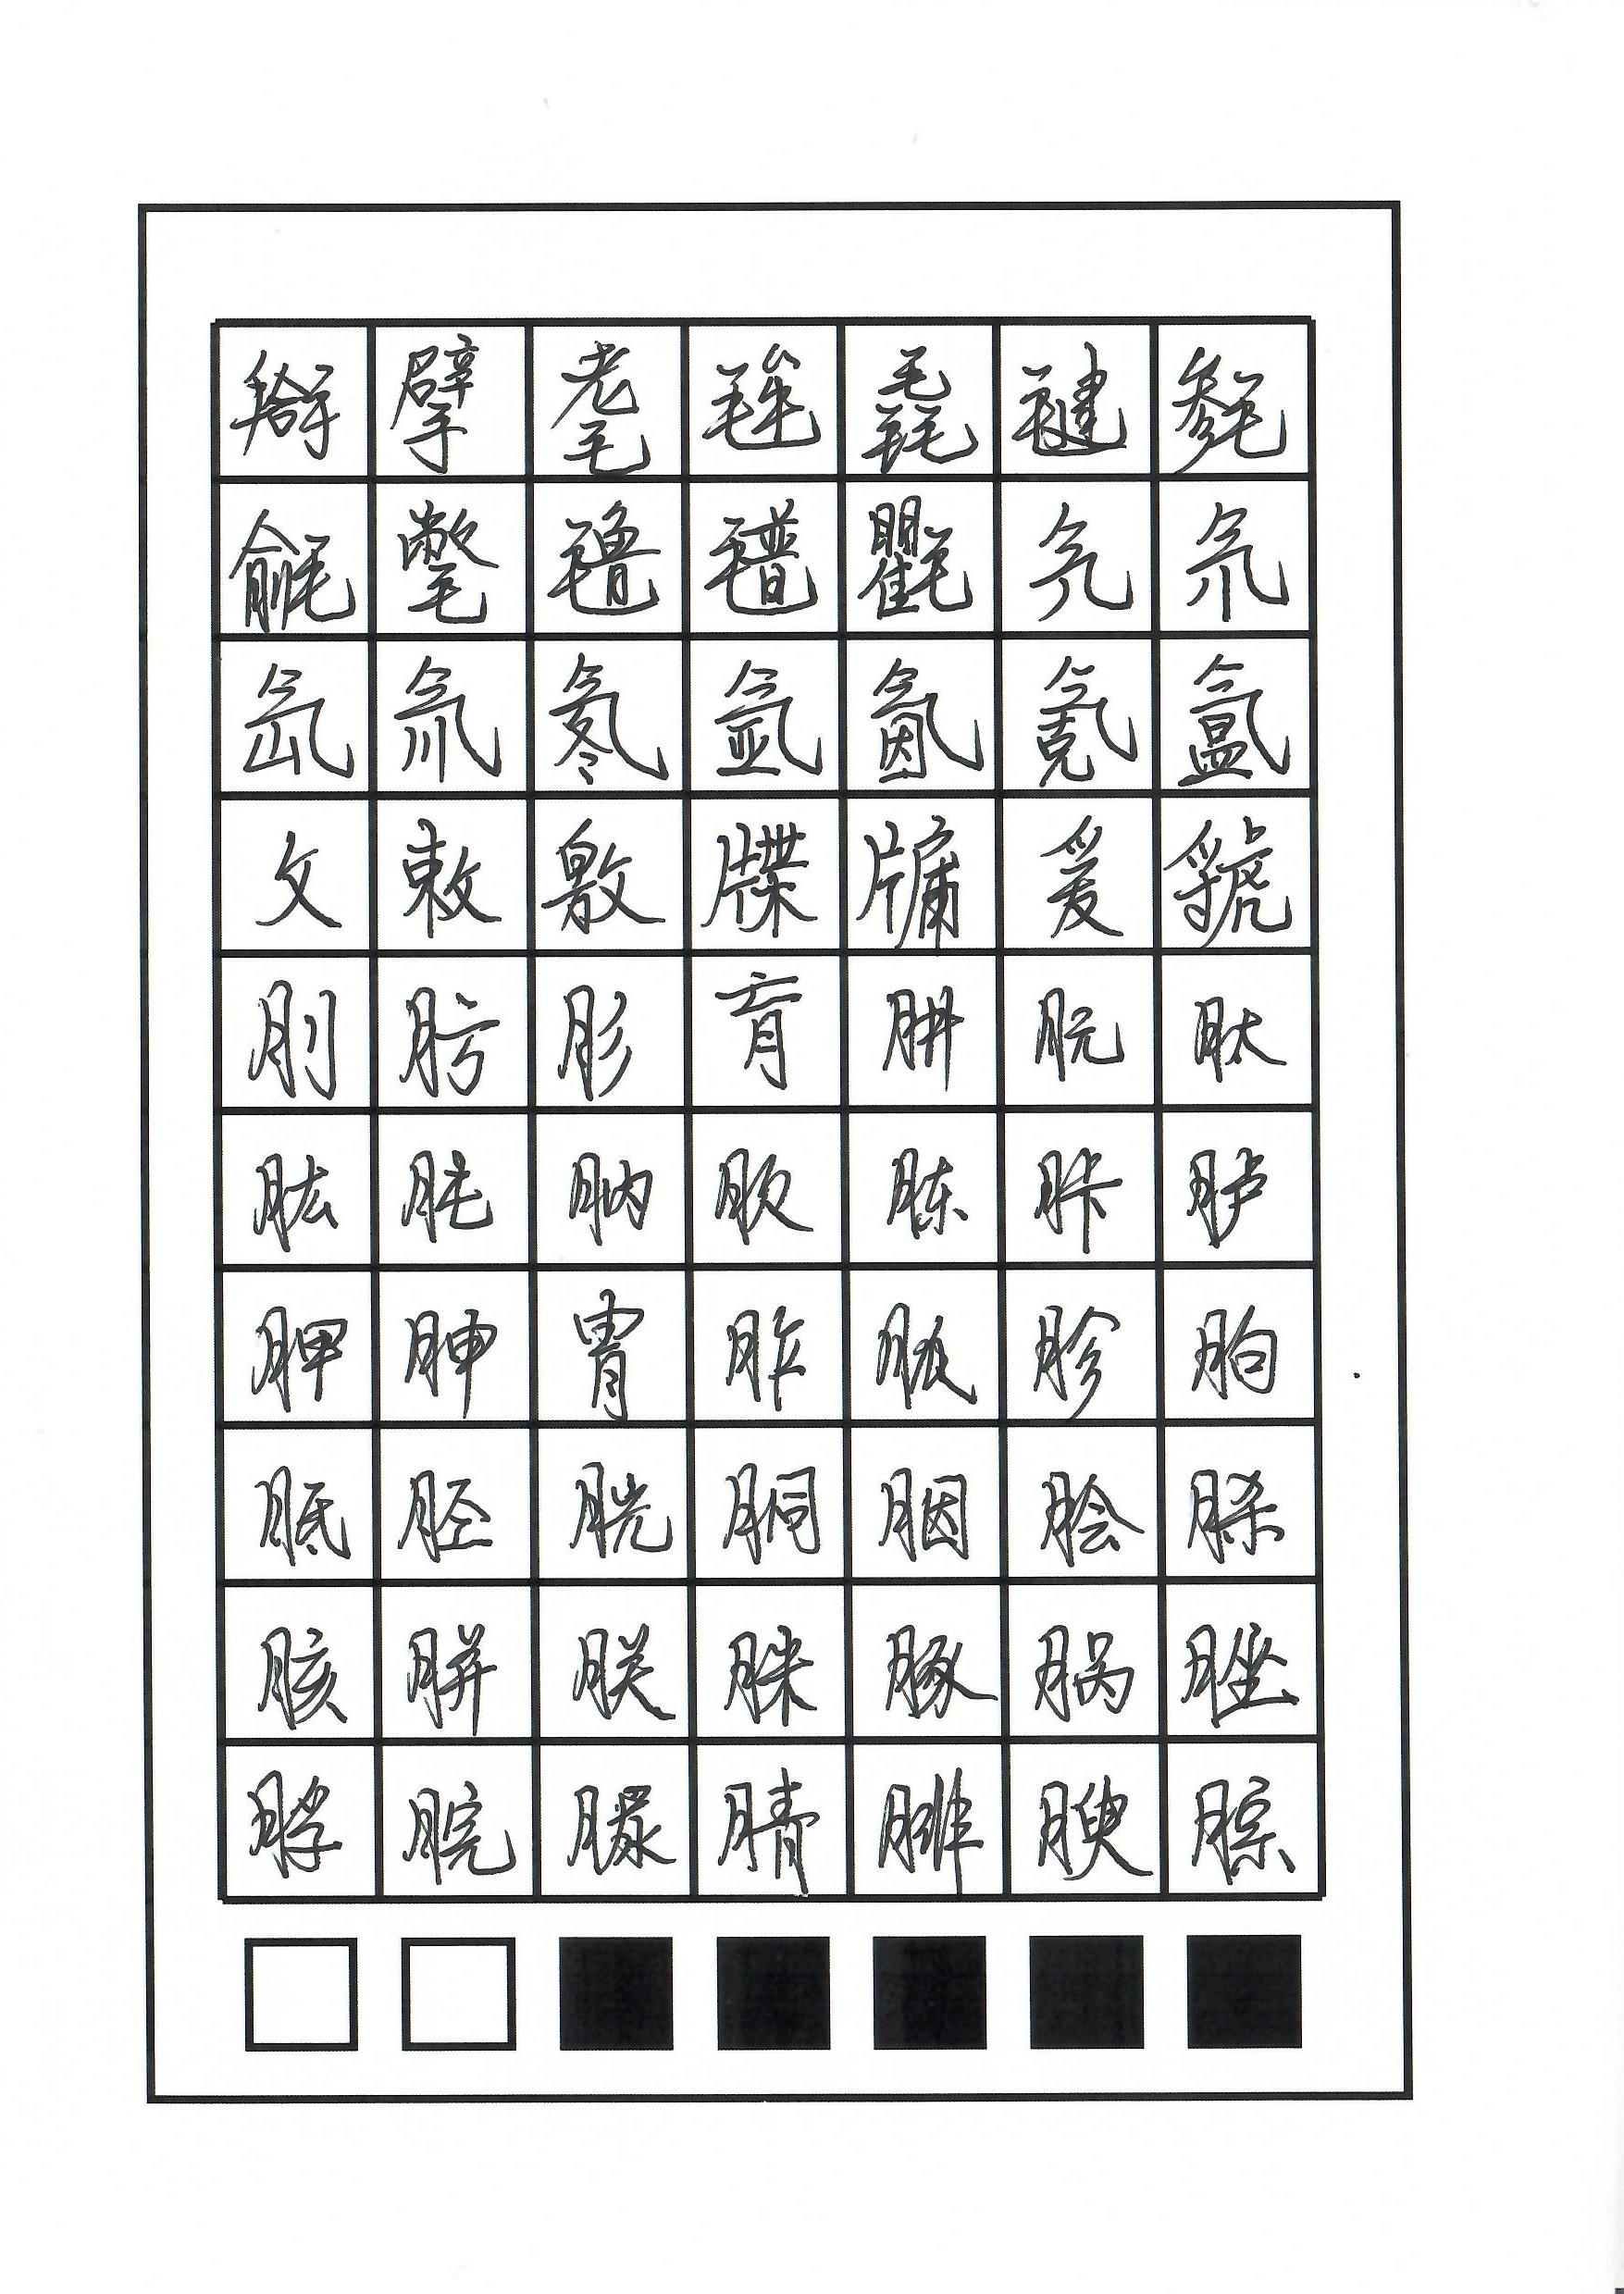 搿擘耄毪毳毽毵
毹氅氇氆氍氕氘
氙氚氡氩氤氪氲
攵敕敫牒牖爰虢
刖肟肜肓肼朊肽
肱肫肭肷胨胩胪
胛胂胄胙胍胗朐
胝胫胱胴胭脍脎
胲胼朕脒豚脶脞
脬脘脲腈腓腴腙